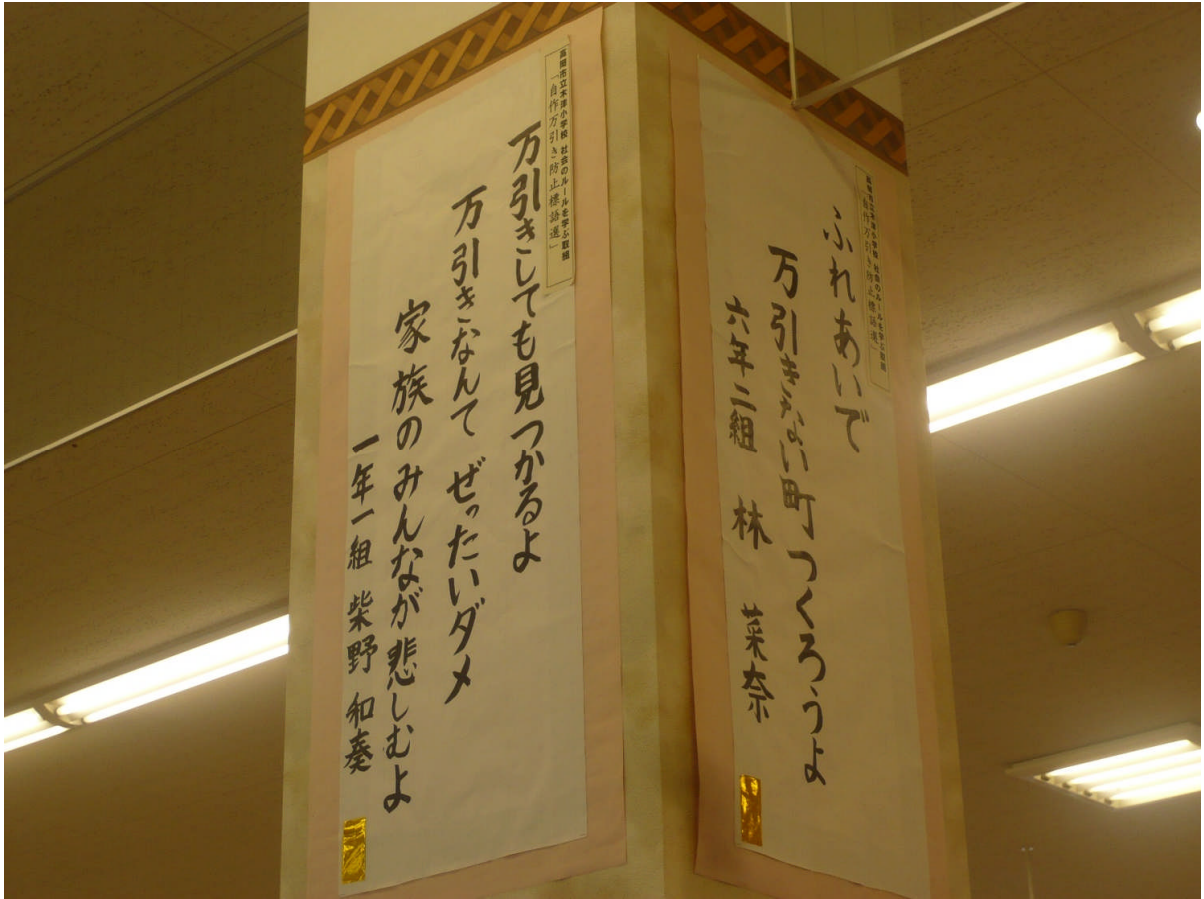 高岡市立木津小学校 社会のルールを学ぶ取組
「自作万引き防止標語選」
万引きしても見つかるよ
万引きなんて ぜったいダメ
家族のみんなが悲しむよ
一年一組 柴野 和奏
高岡市立木津小学校 社会のルールを学ぶ取組
「自作万引き防止標語選」
ふれあいで
万引きない町つくろうよ
六年二組 林 菜奈